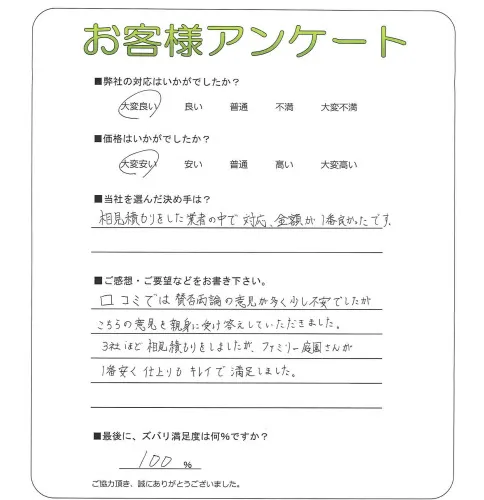 お客様アンケート
■弊社の対応はいかがでしたか？
大変良い 良い 普通 不満 大変不満
■価格はいかがでしたか？
大変安い 安い 普通 高い 大変高い
■当社を選んだ決め手は？
相見積もりをした業者の中で対応、金額が1番良かったです。
■ご感想・ご要望などをお書き下さい。
口コミでは賛否両論の意見が多く少し不安でしたが
こちらの意見も親身に受け答えしていただきました。
3社ほど相見積もりをしましたが、ファミリー庭園さんが
1番安く仕上りもキレイで満足しました。
■最後に、ズバリ満足度は何％ですか？
100 ％
ご協力頂き、誠にありがとうございました。